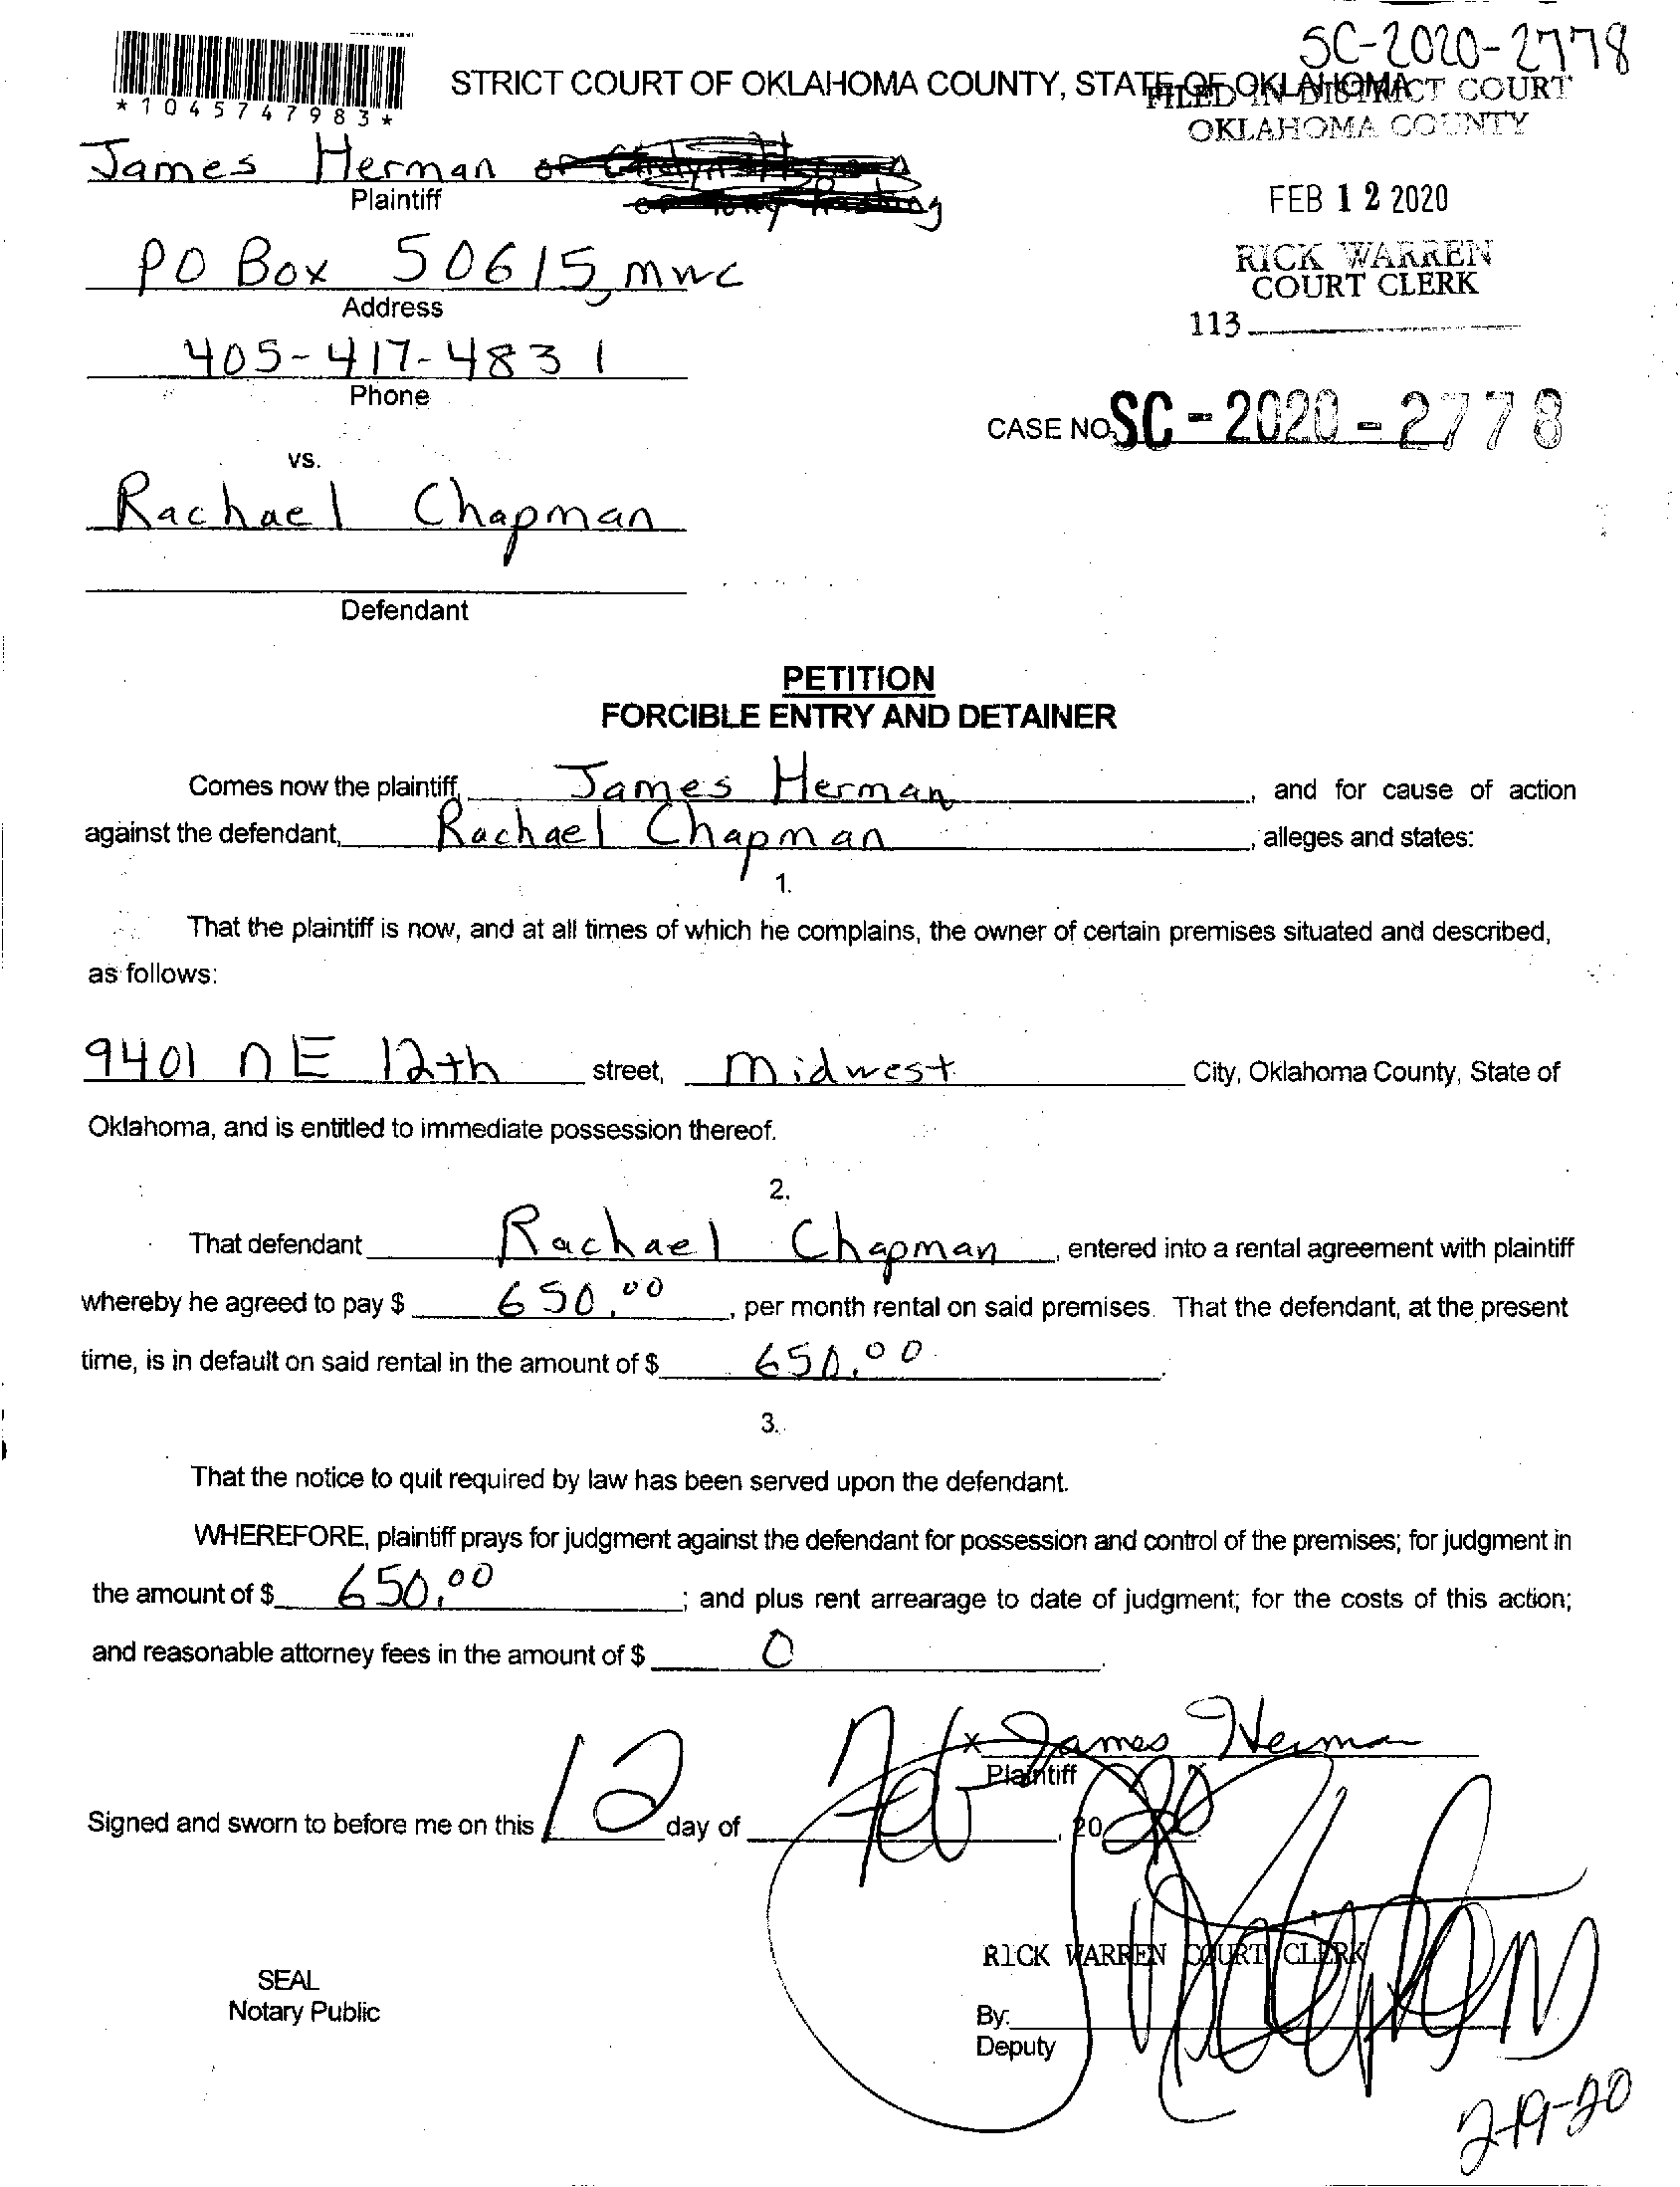 SC-2020-2778
STRICT COURT OF OKLAHOMA COUNTY, STATE OF OKLAHOMA
FILED IN DISTRICT COURT
OKLAHOMA COUNTY
*1045747983*
James Herman or
Plaintiff
FEB 12 2020
RICK WARREN
COURT CLERK
113
PO Box 50615, mwc
Address
405-417-4831
Phone
CASE NO. SC-2020-2778
vs.
Rachael Chapman
Defendant
PETITION
FORCIBLE ENTRY AND DETAINER
Comes now the plaintiff, James Herman, and for cause of action
against the defendant, Rachael Chapman, alleges and states:
1.
That the plaintiff is now, and at all times of which he complains, the owner of certain premises situated and described,
as follows:
9401 NE 12th street, Midwest City, Oklahoma County, State of
Oklahoma, and is entitled to immediate possession thereof.
2.
That defendant Rachael Chapman, entered into a rental agreement with plaintiff
whereby he agreed to pay $ 650.00, per month rental on said premises. That the defendant, at the present
time, is in default on said rental in the amount of $ 650.00.
3.
That the notice to quit required by law has been served upon the defendant.
WHEREFORE, plaintiff prays for judgment against the defendant for possession and control of the premises; for judgment in
the amount of $ 650.00; and plus rent arrearage to date of judgment; for the costs of this action;
and reasonable attorney fees in the amount of $ 0.
x James Herman
Plaintiff
Signed and sworn to before me on this 12 day of Feb, 2020
RICK WARREN COURT CLERK
SEAL
Notary Public
By:
Deputy
2-19-20